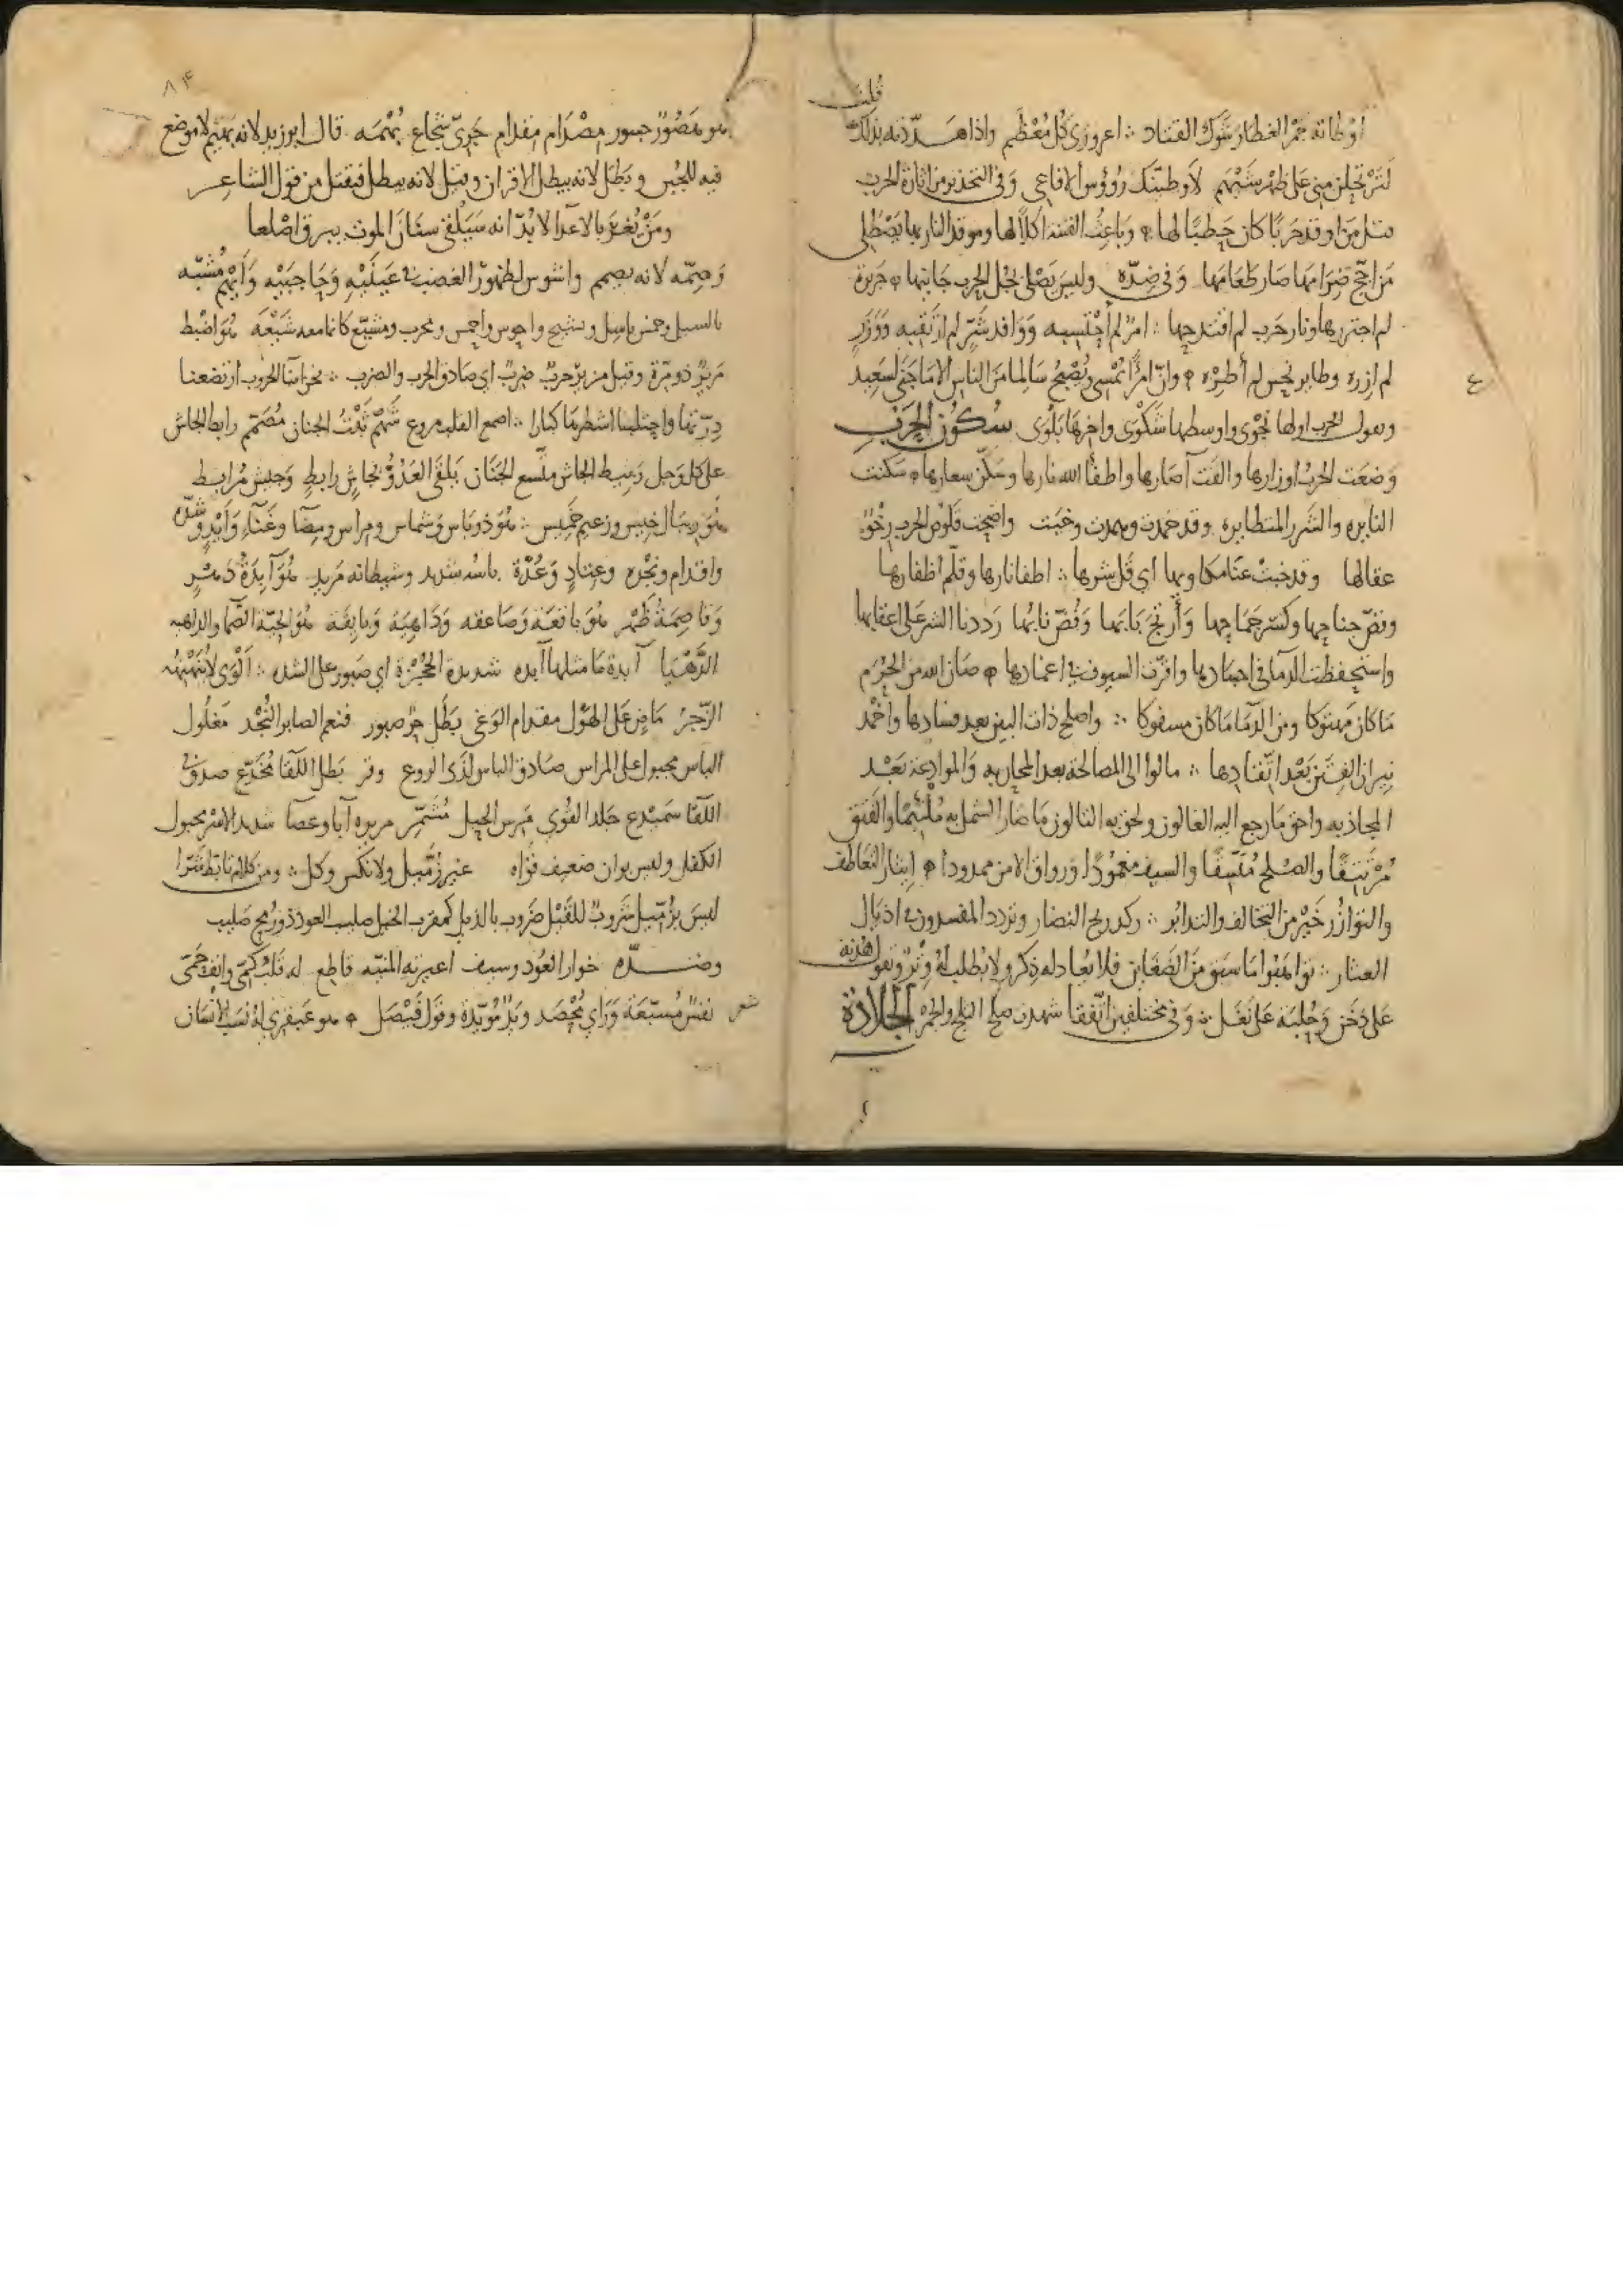 قلت
أوطأته جمر الغضا وشوك القتاد ∴ اعروري كل معظم واذا هددته بذلك
لئن تحملن مني على ظهر شيهم لأوطئنك رؤوس الافاعي وفي التحذير من اثارة الحرب
مثل من اوقد حربا كان حطبا لها وباعث الفتنة اكلا لها وموقد النار بها يصطلي
من اجج ضرامها صار طعامها وفي ضده وليس يصلى بجل الحرب جانيها جريرة
لم اجتررها ونار حرب لم اقتدحها ∴ امر لم أجتلبه ووافد شر لم ارتقبه ووزر
لم ازره وطاير نحس لم أطره وان امرأ يمسي ويصبح سالما من الناس الا ما جنى لسعيد
ويقول الحرب اولها نجوى واوسطها شكوى واخرها بلوى سكون الحرب
وضعت الحرب اوزارها والقت آصارها واطفأ الله نارها وسكن سعارها سكنت
النايره والشرر المتطايره وقد خمدت وهمدت وخبت واضحت قلوص الحرب رخوا
عقالها وقد خبت عنا مكاويها اي قل شرها ∴ اطفا نارها وقلم اظفارها
وقص جناحها وكسر جماحها وأرتج بابها وفض نابها رددنا الشر على اعقابها
واستحفظت الدما في اجسادها واقرت السيوف في اغمادها صان الله من الحرم
ما كان مهتوكا ومن الدما ما كان مسفوكا ∴ واصلح ذات البين بعد فسادها واخمد
نيران الفتن بعد اتقادها ∴ مالوا الى المصالحة بعد المحاربه والموادعة بعد
المجاذبه واحق ما رجع اليه الغالون ولحق به التالون ما صار الشمل به ملتئما والفتق
مرتتقا والصلح متسقا والسيف مغمودا ورواق الامن ممدودا ايثار التعاطف
والتوازر خير من التخالف والتدابر ∴ ركد ريح وتردد المفسدون في اذيال
العثار ∴ تواهبوا ما سبق من الضغاين فلا يعاد له ذكر ولا يطلب له وتر ويقول هدنة
على دخن وجلبة على نغل ∴ وفي مختلفين اتفقا شهدت صلح الثلج والجمر الجلادة
٨٤
هو هصور جسور مصدام مقدام جري شجاع بهمه قال ابو زيد لانه بهيم لا موضع
فيه للجبن وبطل لانه يبطل الاقران وقيل لانه يبطل فيقتل من قول الشاعر
ومن يغر بالاعدا لا بد انه سيلقى سنان الموت ببرق اصلعا
وصمه لانه يصمم واشوس لظهور الغضب في عينيه وحاجبيه وأيهم مشبه
بالسيل وحمس باسل ومشيح واحوس واحمس ومحرب ومشيع كانما معه شيعه هو اضبط
مرير ذو مرة وقيل مز بر حرب ضرب اي صادق الحرب والضرب ∴ نحن اناس الحروب ارتضعنا
درتها واحتلبنا اشطرها كبارا ∴ اصمع القلب مروع شهم ثبت الجنان مصمم رابط الجاش
على كل وجل ربيط الجاش متسع الجنان يلقى العدو بجاش رابط وجيش مرابط
هو ريبال خيس وزعيم خميس ∴ هو ذو باس وشماس ومراس ومضا وغناء وأيد وشده
واقدام ونجده وعتاد وعدة باسه شديد وشيطانه مريد هو آبدة دهر
وقاصمة ظهر هو باقعة وصاعقه وداهية وبايقة هو الحية الصما والداهيه
الدهيا آبدة ما مثلها آبده شديدة الحجزة اي صبور على الشده ∴ ألوى لا ينهنهه
الزجر ماض على الهول مقدام الوغى بطل حر صبور فنعم الصابر النجد مغلول
الباس مجبول على المراس صادق الباس لدى الروع وقر بطل اللقا مخدع صدق
اللقا سميدع جلد القوي مرس الحبل مشمر مريره آبا وعصا شديد الاسر مجبول
الكفل وليس بوان ضعيف قواه غير زميل ولا نكس وكل ∴ ومن كلام تابط شرا
ليس بزميل شروب للقيل ضروب بالذيل كمقرب الخيل صليب العود ذو ريح صليب
وضده خوار العود وسيف اعيرته المنيه قاطع له قلب كمي وانف حمي
شعر نفس مسبعة وراي محصد ويد مؤيدة وقول فيصل هو عبقري له نسب الانسان